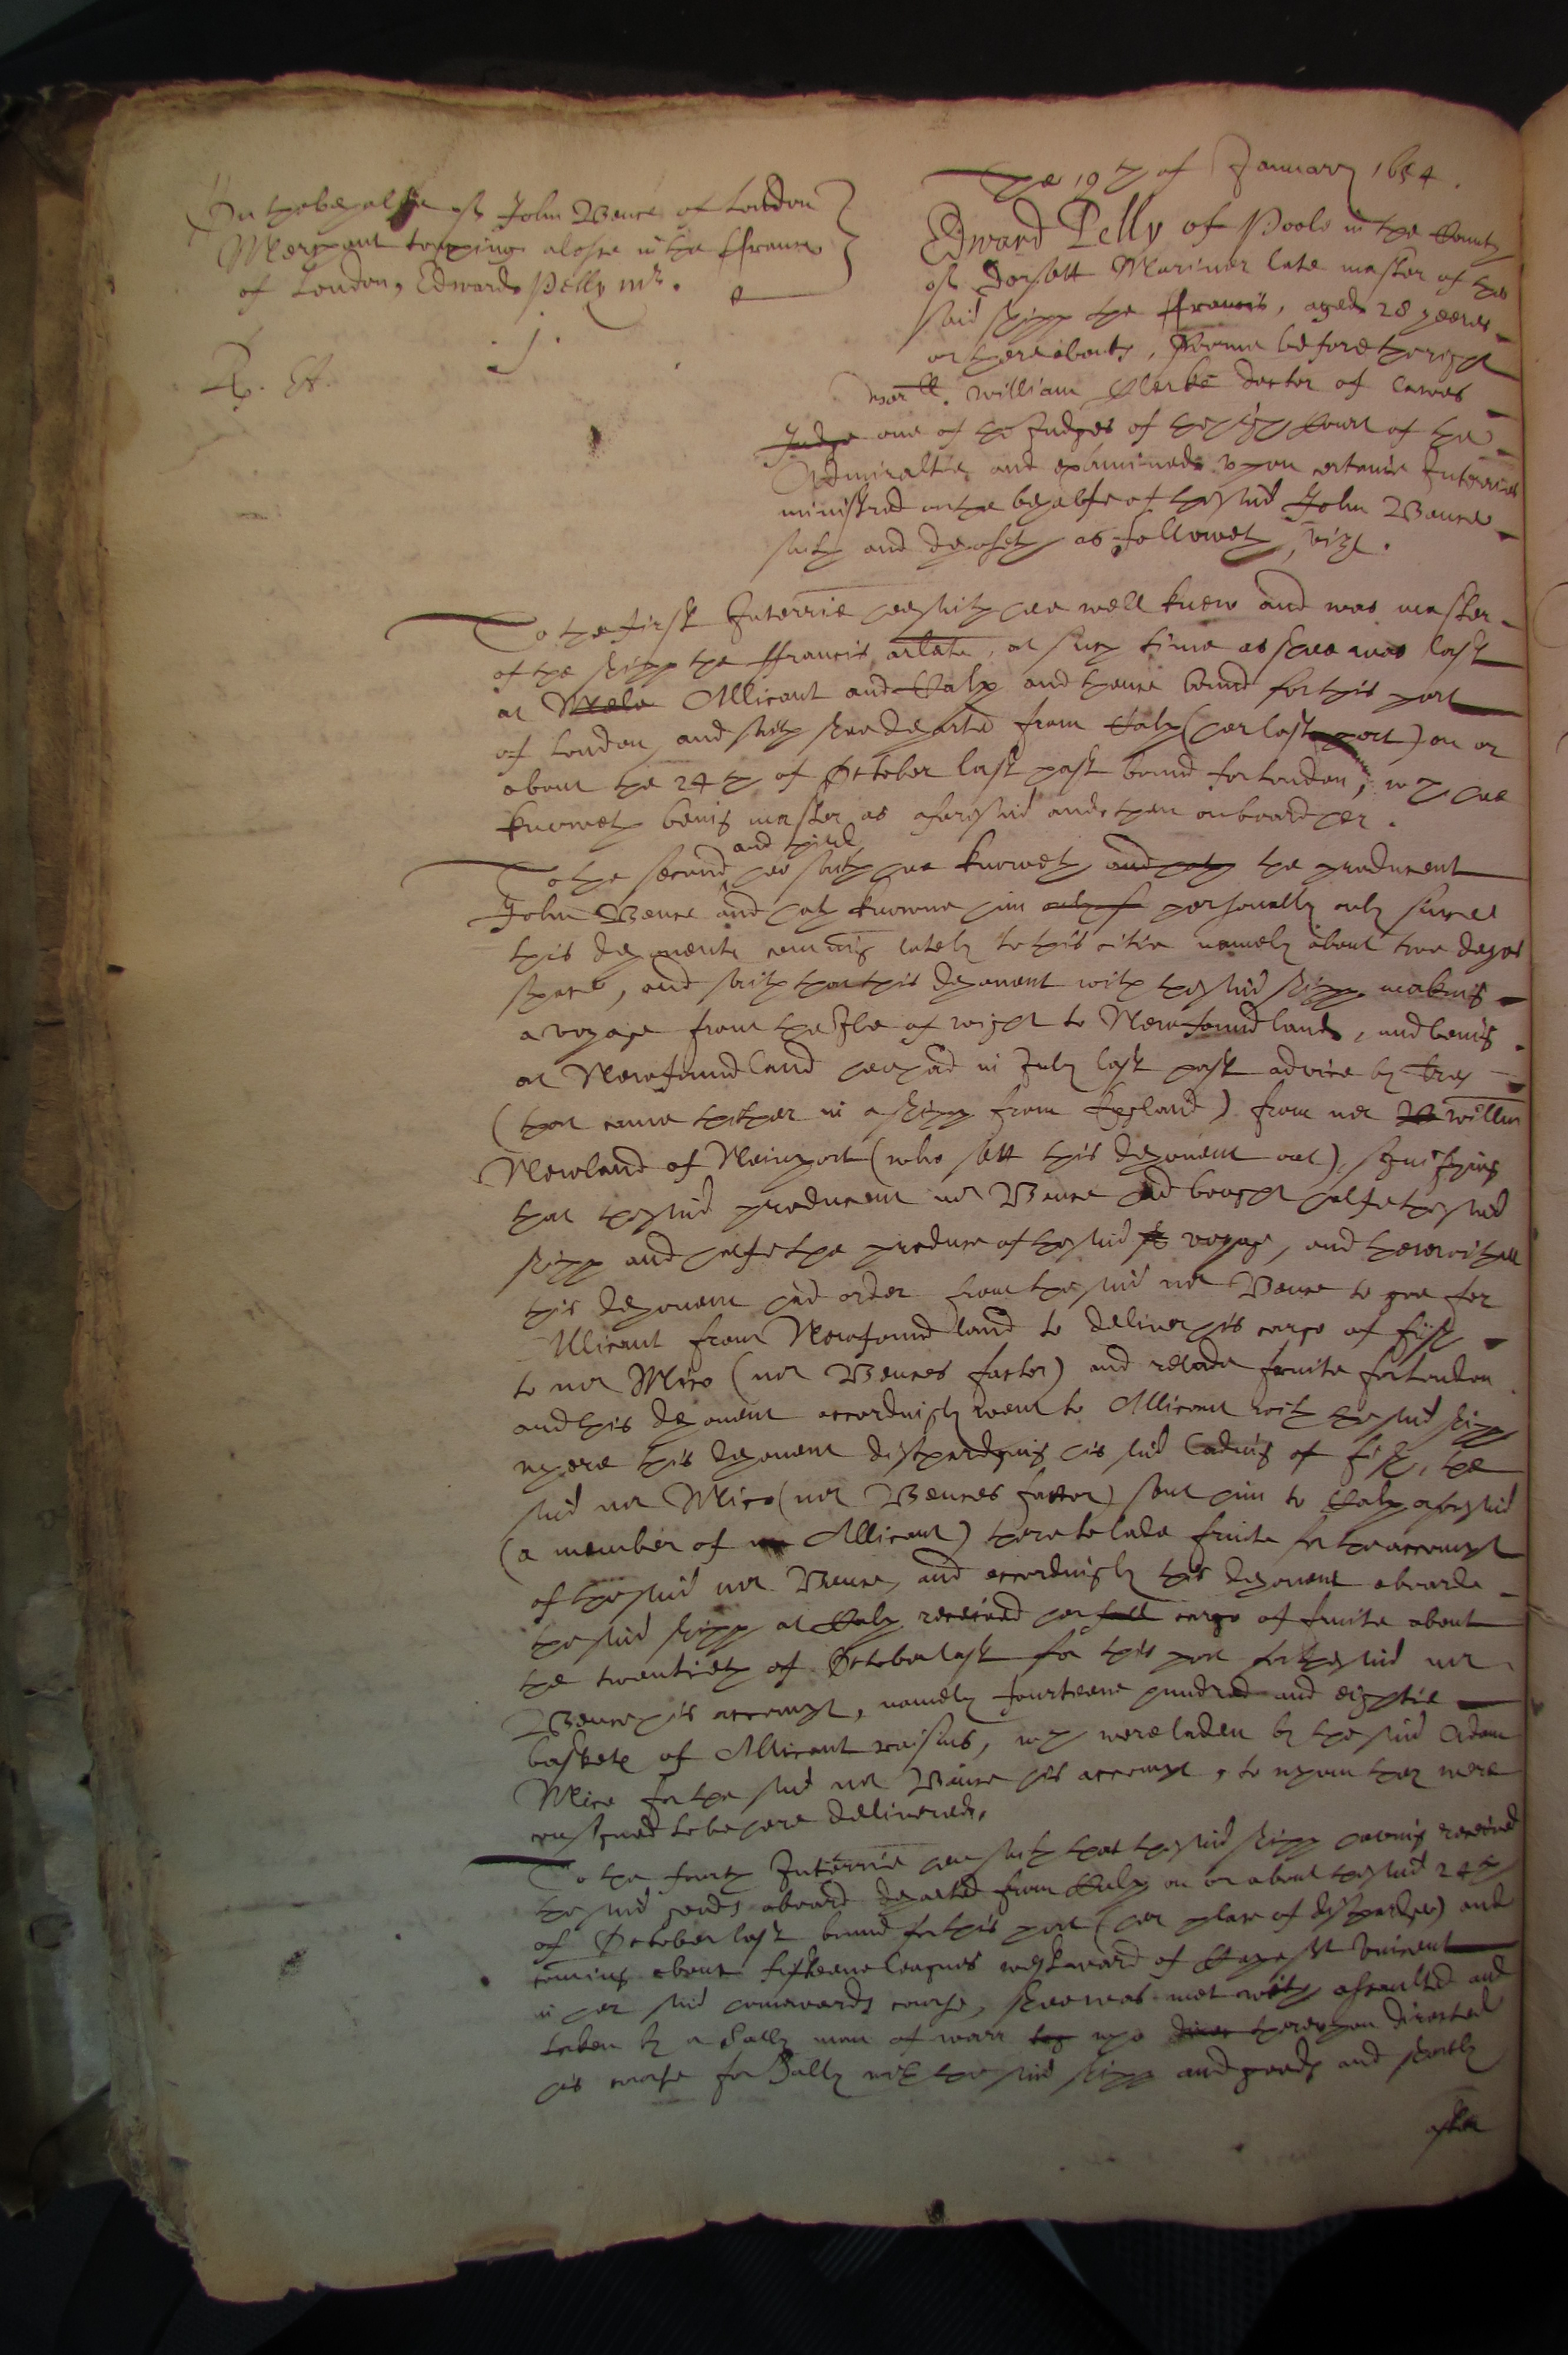 On the behalfe of John Vance of London
Merchant touching a losse in the ffrancis
of London, Edward Pelly mr.
j.
The 19th of January 1654.
Edward Pelly of Poole in the County
of Dorsett Mariner late master of the
said shipp the ffrancis, aged 28 yeeres
or thereabouts, sworne before the right
worll. William Clerke doctor of lawes
Judge one of the Judges of the high Court of the
Admiraltie and examined upon certaine Interries
ministred on the behalfe of the said John Vance
saith and deposeth as followeth, vizt.
To the first Interrie hee saith hee well knew and was master
of the shipp the ffrancis arlate, at such time as shee was last
at Allicant and and thence bound for this port
of London, and saith shee departed from (her last port) on or
about the 24th of October last past bound for London, wch hee
knoweth being master as aforesaid and then on board her.
and third
To the second hee saith hee knoweth and hath the producent
John Vance and hath knowne him only personally only since
this deponents coming lately to this citie namely about two dayes
space, and saith that this deponent with the said shipp making
a voyage from the Isle of wight to Newfoundland, and being
at Newfoundland hee had in July last past advice by lres
(that came thither in a shipp from England) from mr willm
Newland of Newport (who sett this deponent out), signifying
that the said producent mr Vance had bought halfe the said
shipp and halfe the produce of the said voyage, and therewithall
this deponent had order from the said mr Vance to goe for
Allicant from Newfoundland to deliver his cargo of fish
to mr Mico (mr Vances factor) and relade fruite for London
and this deponent accordingly went to Allicant with the said shipp
where this deponent discharging his said lading of fish, the
said mr Mico (mr Vances factor) sent him to aforesaid
(a member of Allicant) there to lade fruite for the accompt
of the said mr Vance, and accordingly this deponent aboarde
the said shipp at received her full cargo of fruite about
the twentieth of October last for this port for the said mr
Vance his accompt, namely fourteene hundred and eightie
baskets of Allicant raisins, wch were laden by the said Adam
Mico for the said mr Vance his accompt, to whom they were
consigned to be here delivered.
To the fourth Interrie hee saith that the said shipp having received
the said goods aboard departed from on or about the said 24th
of October last bound for this port (her place of discharge) and
coming about fifteene leagues westward of Cape St Vincent
in her said homewards course, shee was met with assaulted and
taken by a Sally man of warr who thereupon directed
his course for Sally with the said shipp and goods and shortly
after